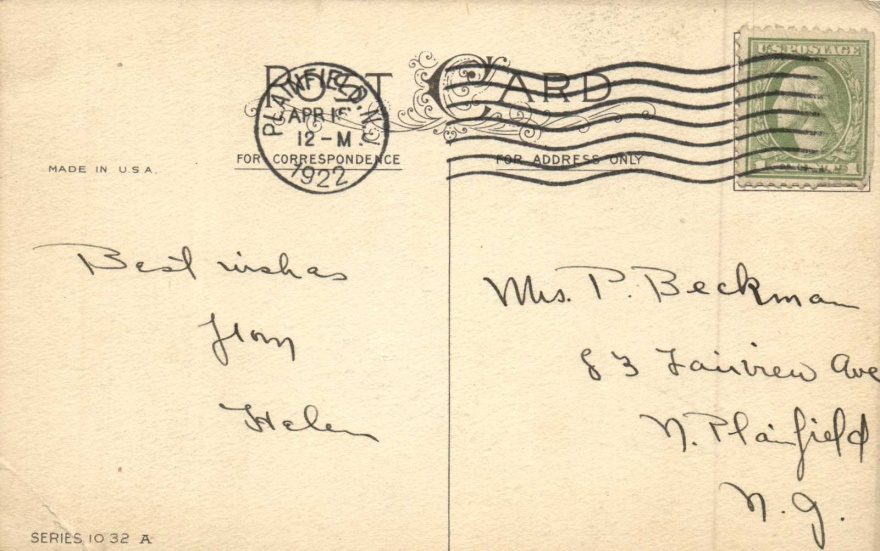 POST CARD
PLAINFIELD, N.J.
APR 15
12 - M.
1922
U.S. POSTAGE
1 CENT 1
FOR CORRESPONDENCE
FOR ADDRESS ONLY
MADE IN U.S.A.
Best wishes
from
Helen
Mrs. P. Beckman
83 Fairview Ave
N. Plainfield
N. J.
SERIES 1032 A